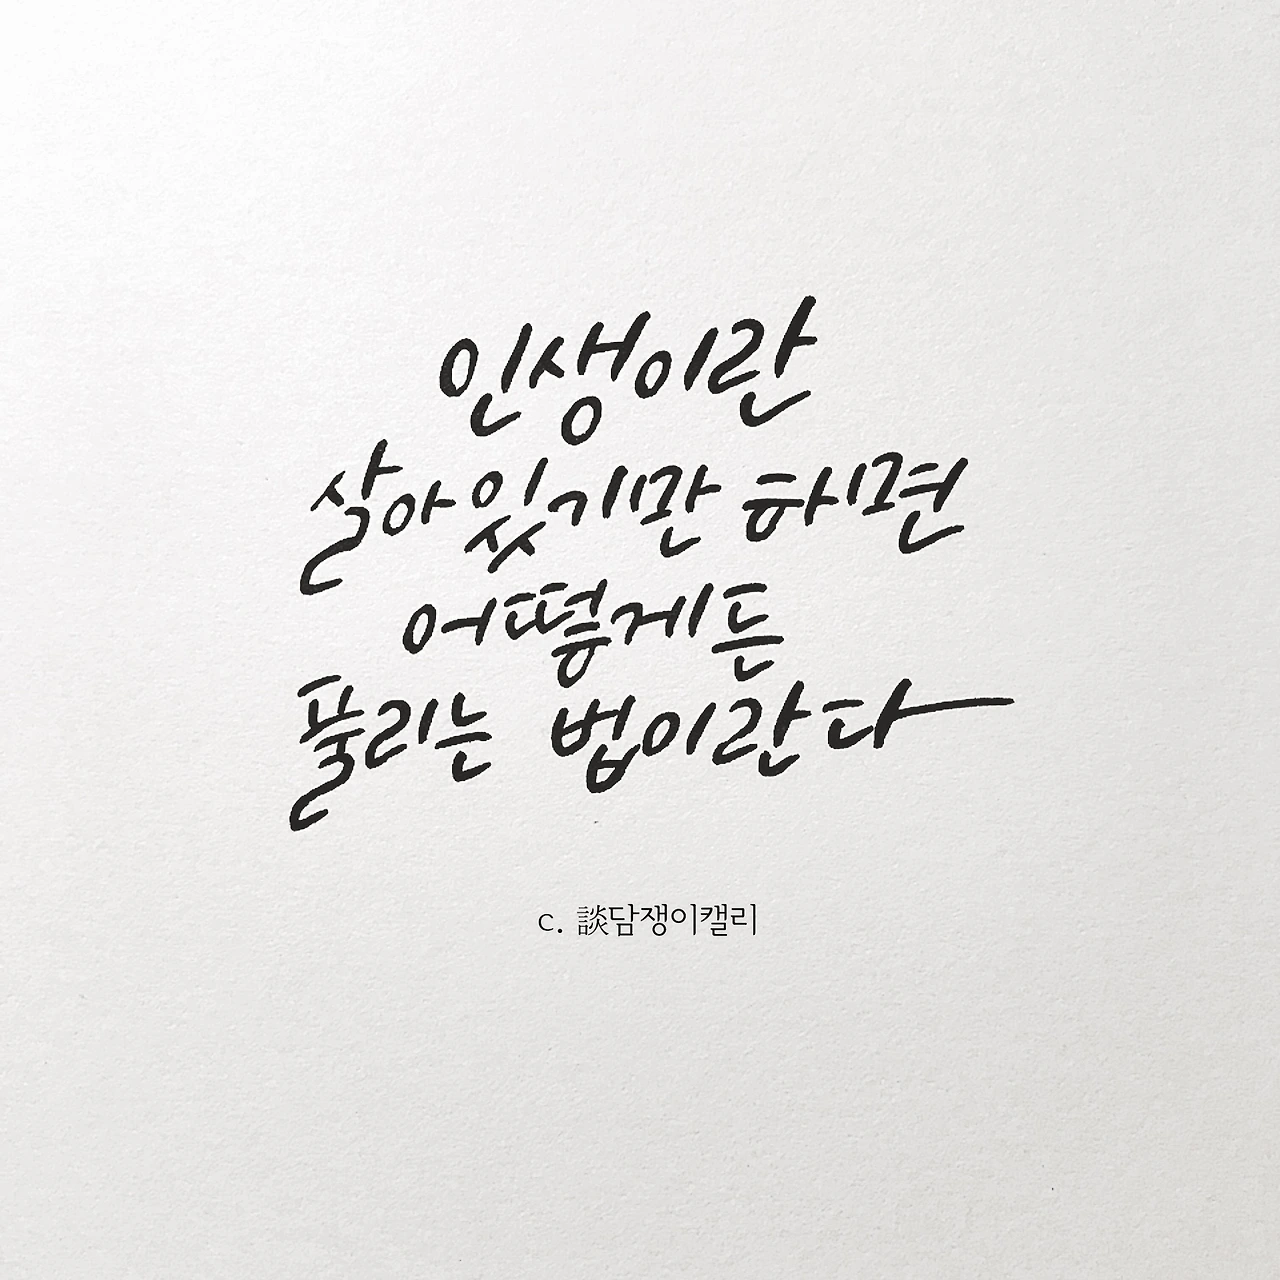 인생이란
살아있기만 하면
어떻게든
풀리는 법이란다
c. 談담쟁이캘리